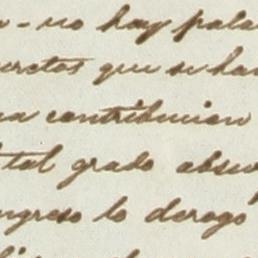 no hay pala
que se han
na contribucion
tal grado absu
ngreso lo derogó